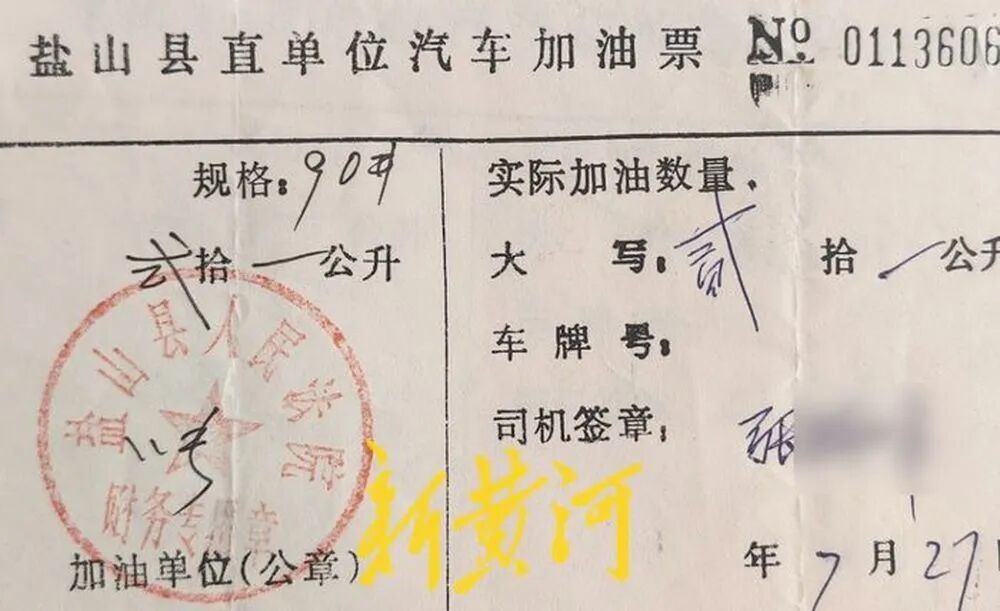 盐山县直单位汽车加油票 No 0113606
规格:90#
贰拾一公升
盐山县人民法院
财务专用章
加油单位(公章)
实际加油数量.
大 写:贰拾一公升
车 牌 号:
司机签章:张
年7月27日
新黄河